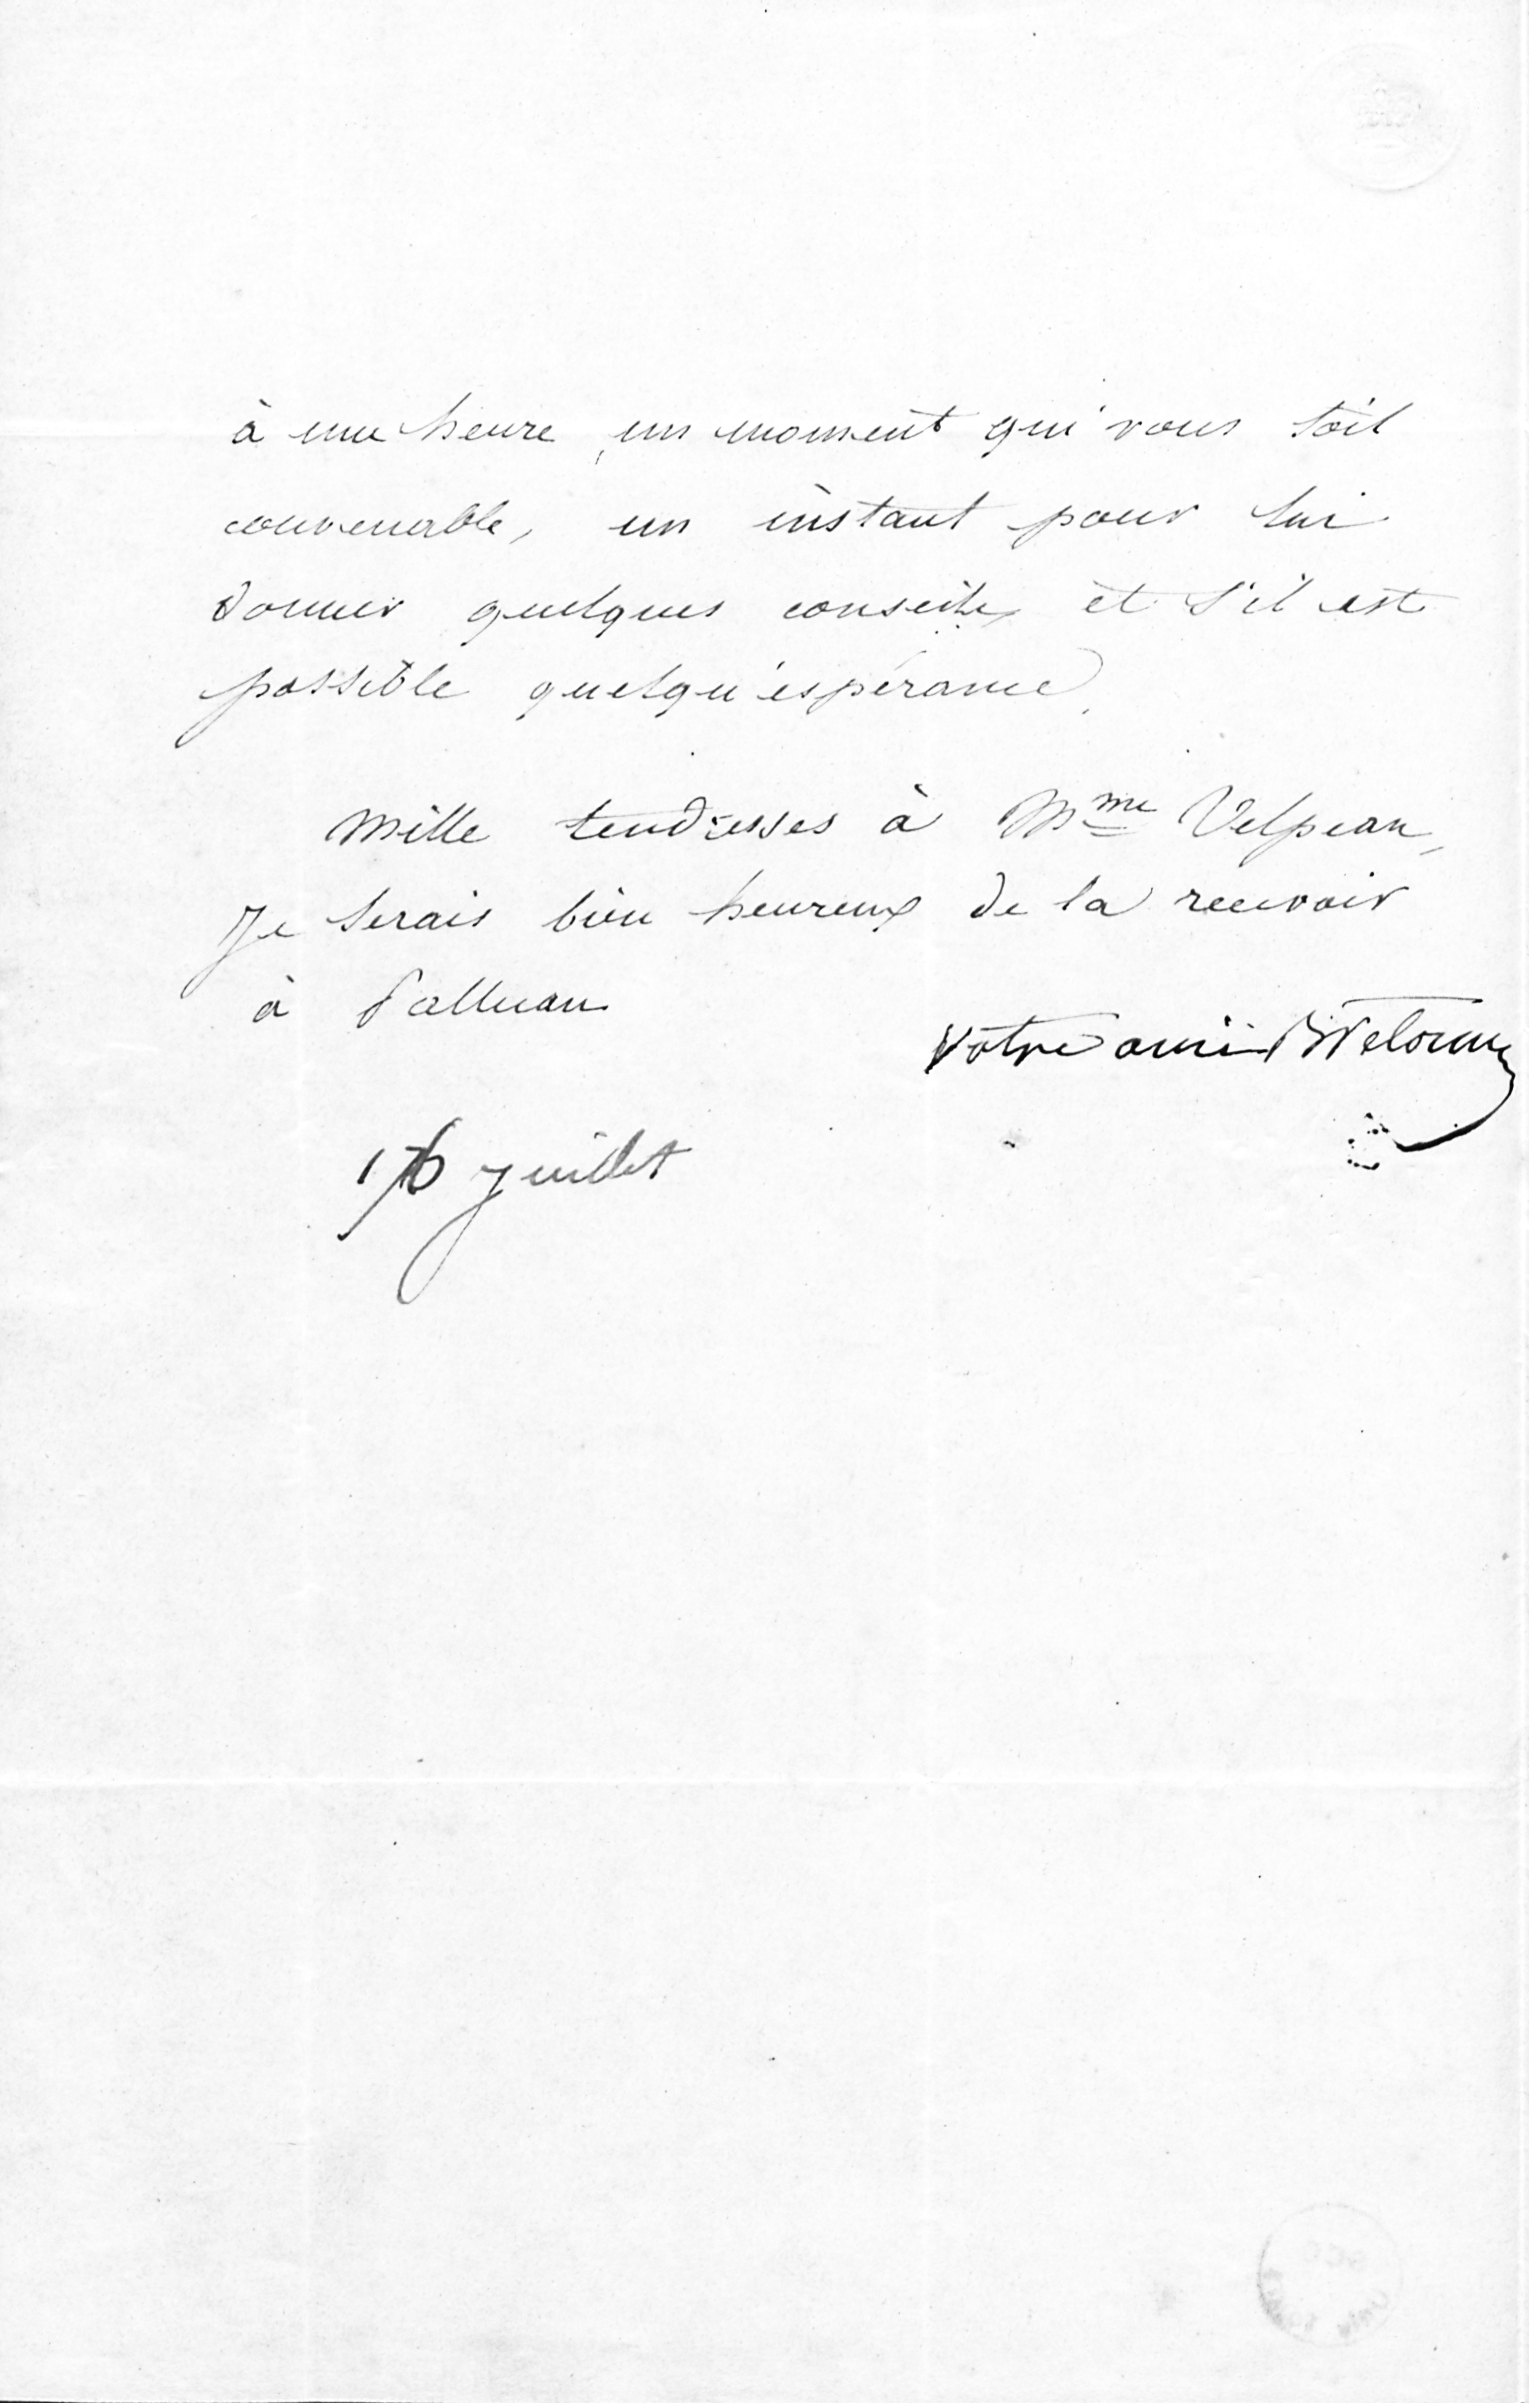 à une heure, un moment qui vous soit
convenable, un instant pour lui
donner quelques conseils et s'il est
possible quelqu'espérance.
Mille tendresses à Mme Velpeau,
Je serais bien heureux de la recevoir
à Palluau
Votre ami
16 Juillet